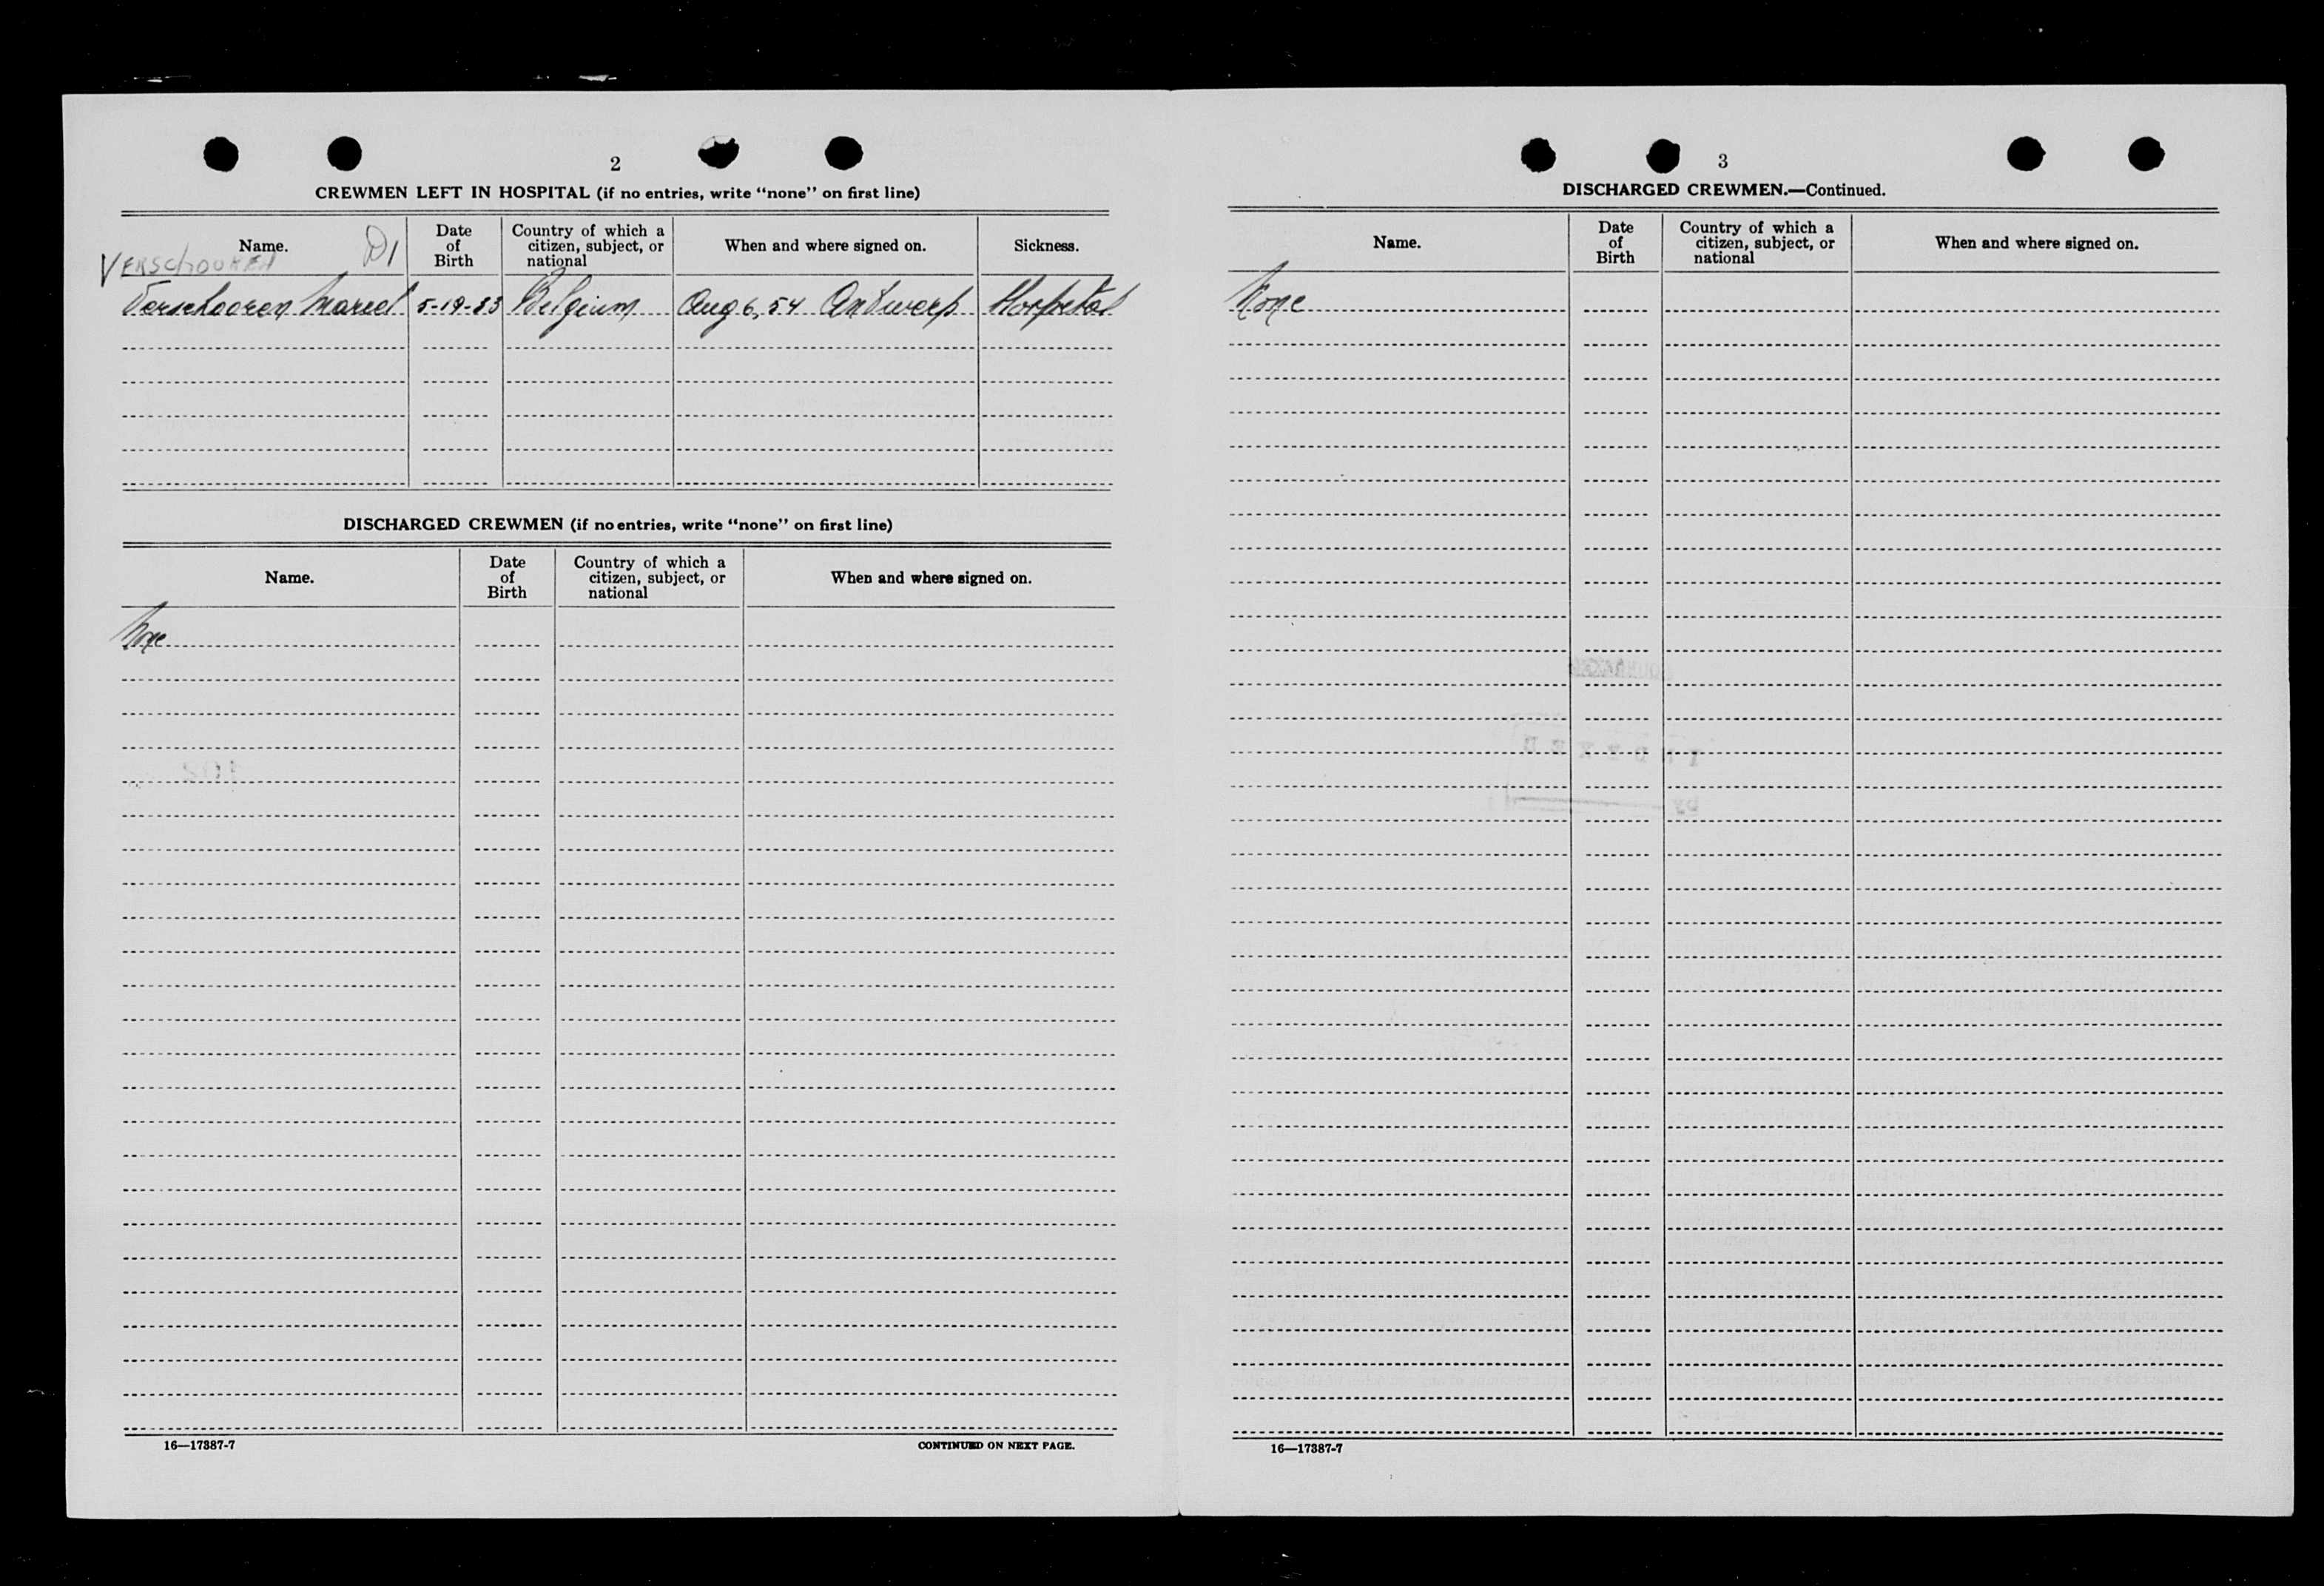 2
CREWMEN LEFT IN HOSPITAL (if no entries, write "none" on first line)
Name.
Date of Birth
Country of which a citizen, subject, or national
When and where signed on.
Sickness.
D1
Verschooren Marcel 5-19-33 Belgium Aug 6, 54 Antwerp Hospital
DISCHARGED CREWMEN (if no entries, write "none" on first line)
Name.
Date of Birth
Country of which a citizen, subject, or national
When and where signed on.
None
16—17387-7
CONTINUED ON NEXT PAGE.
3
DISCHARGED CREWMEN.—Continued.
Name.
Date of Birth
Country of which a citizen, subject, or national
When and where signed on.
None
16—17387-7